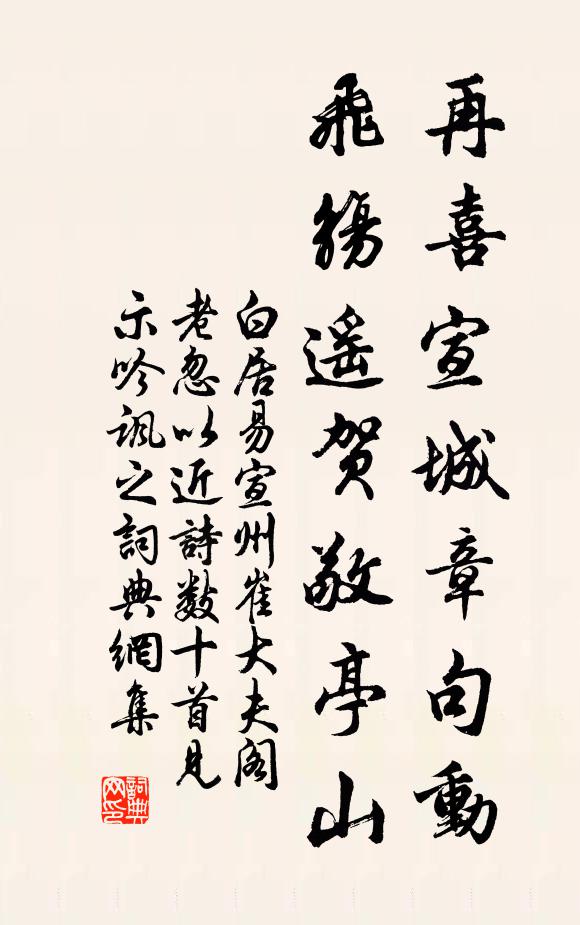 再喜宣城章句動
飛觴遥賀敬亭山
白居易宣州崔大夫閣
老忽以近詩数十首見
示吟諷之詞典網集
詞典
网印